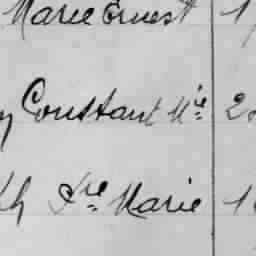 Marie Ernest 1
y Constant Mie 2
th Fre Marie 1